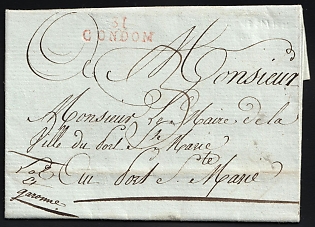 31
CONDOM
Monsieur
Monsieur Le Maire de la
Ville du Port Ste Marie
au Port Ste Marie
garonne